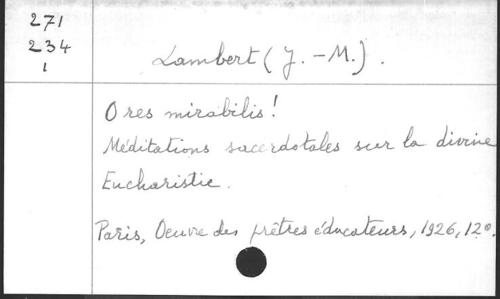 271
234
1
Lambert (J. - M.).
O res mirabilis!
Méditations sacerdotales sur la divine
Eucharistie.
Paris, Oeuvre des prêtres éducateurs, 1926, 12º.